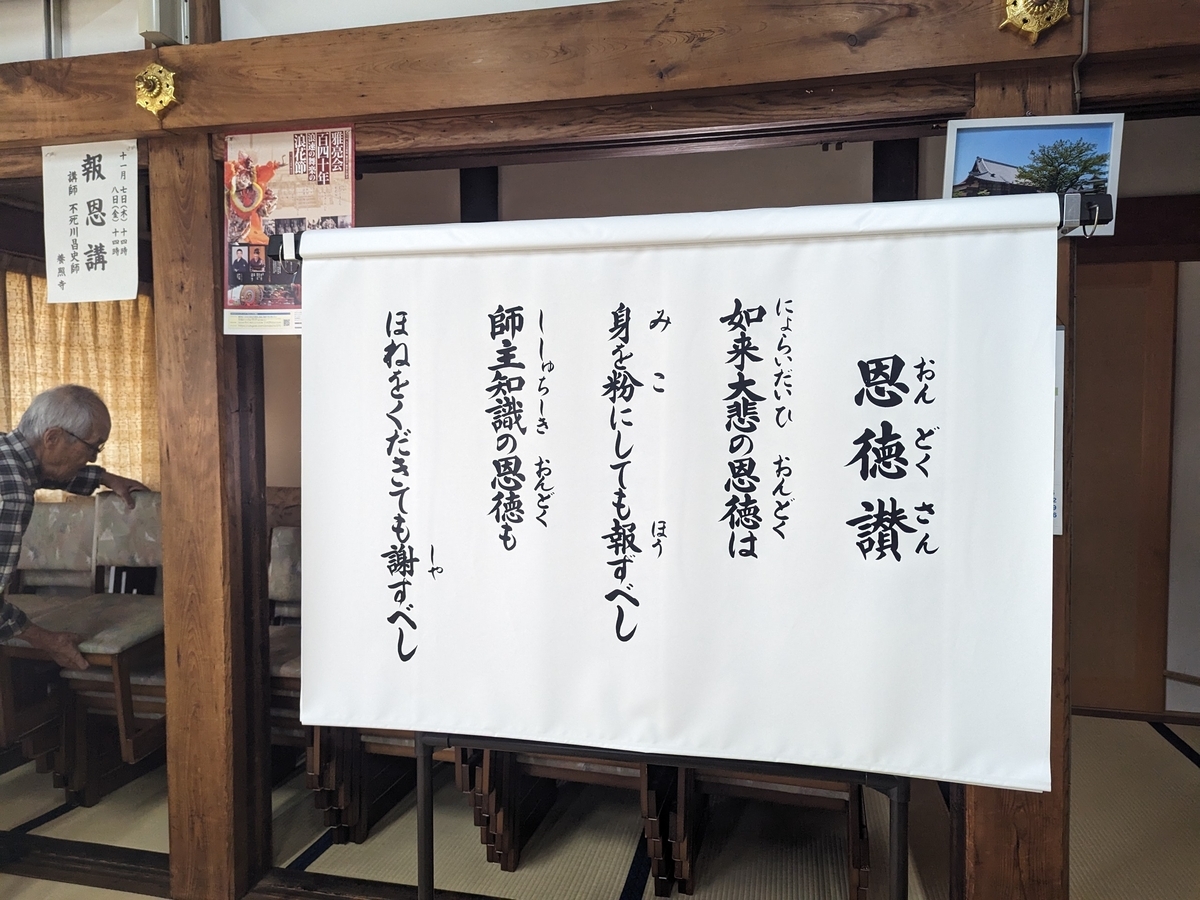 恩徳讃
おんどくさん
如来大悲の恩徳は
にょらいだいひ おんどく
身を粉にしても報ずべし
み こ ほう
師主知識の恩徳も
ししゅちしき おんどく
ほねをくだきても謝すべし
しゃ
雅亮会
百四十年
浪速の舞楽の
浪花節
十一月 七日(木)十四時
八日(金)十四時
報恩講
講師 不死川昌史師
養照寺